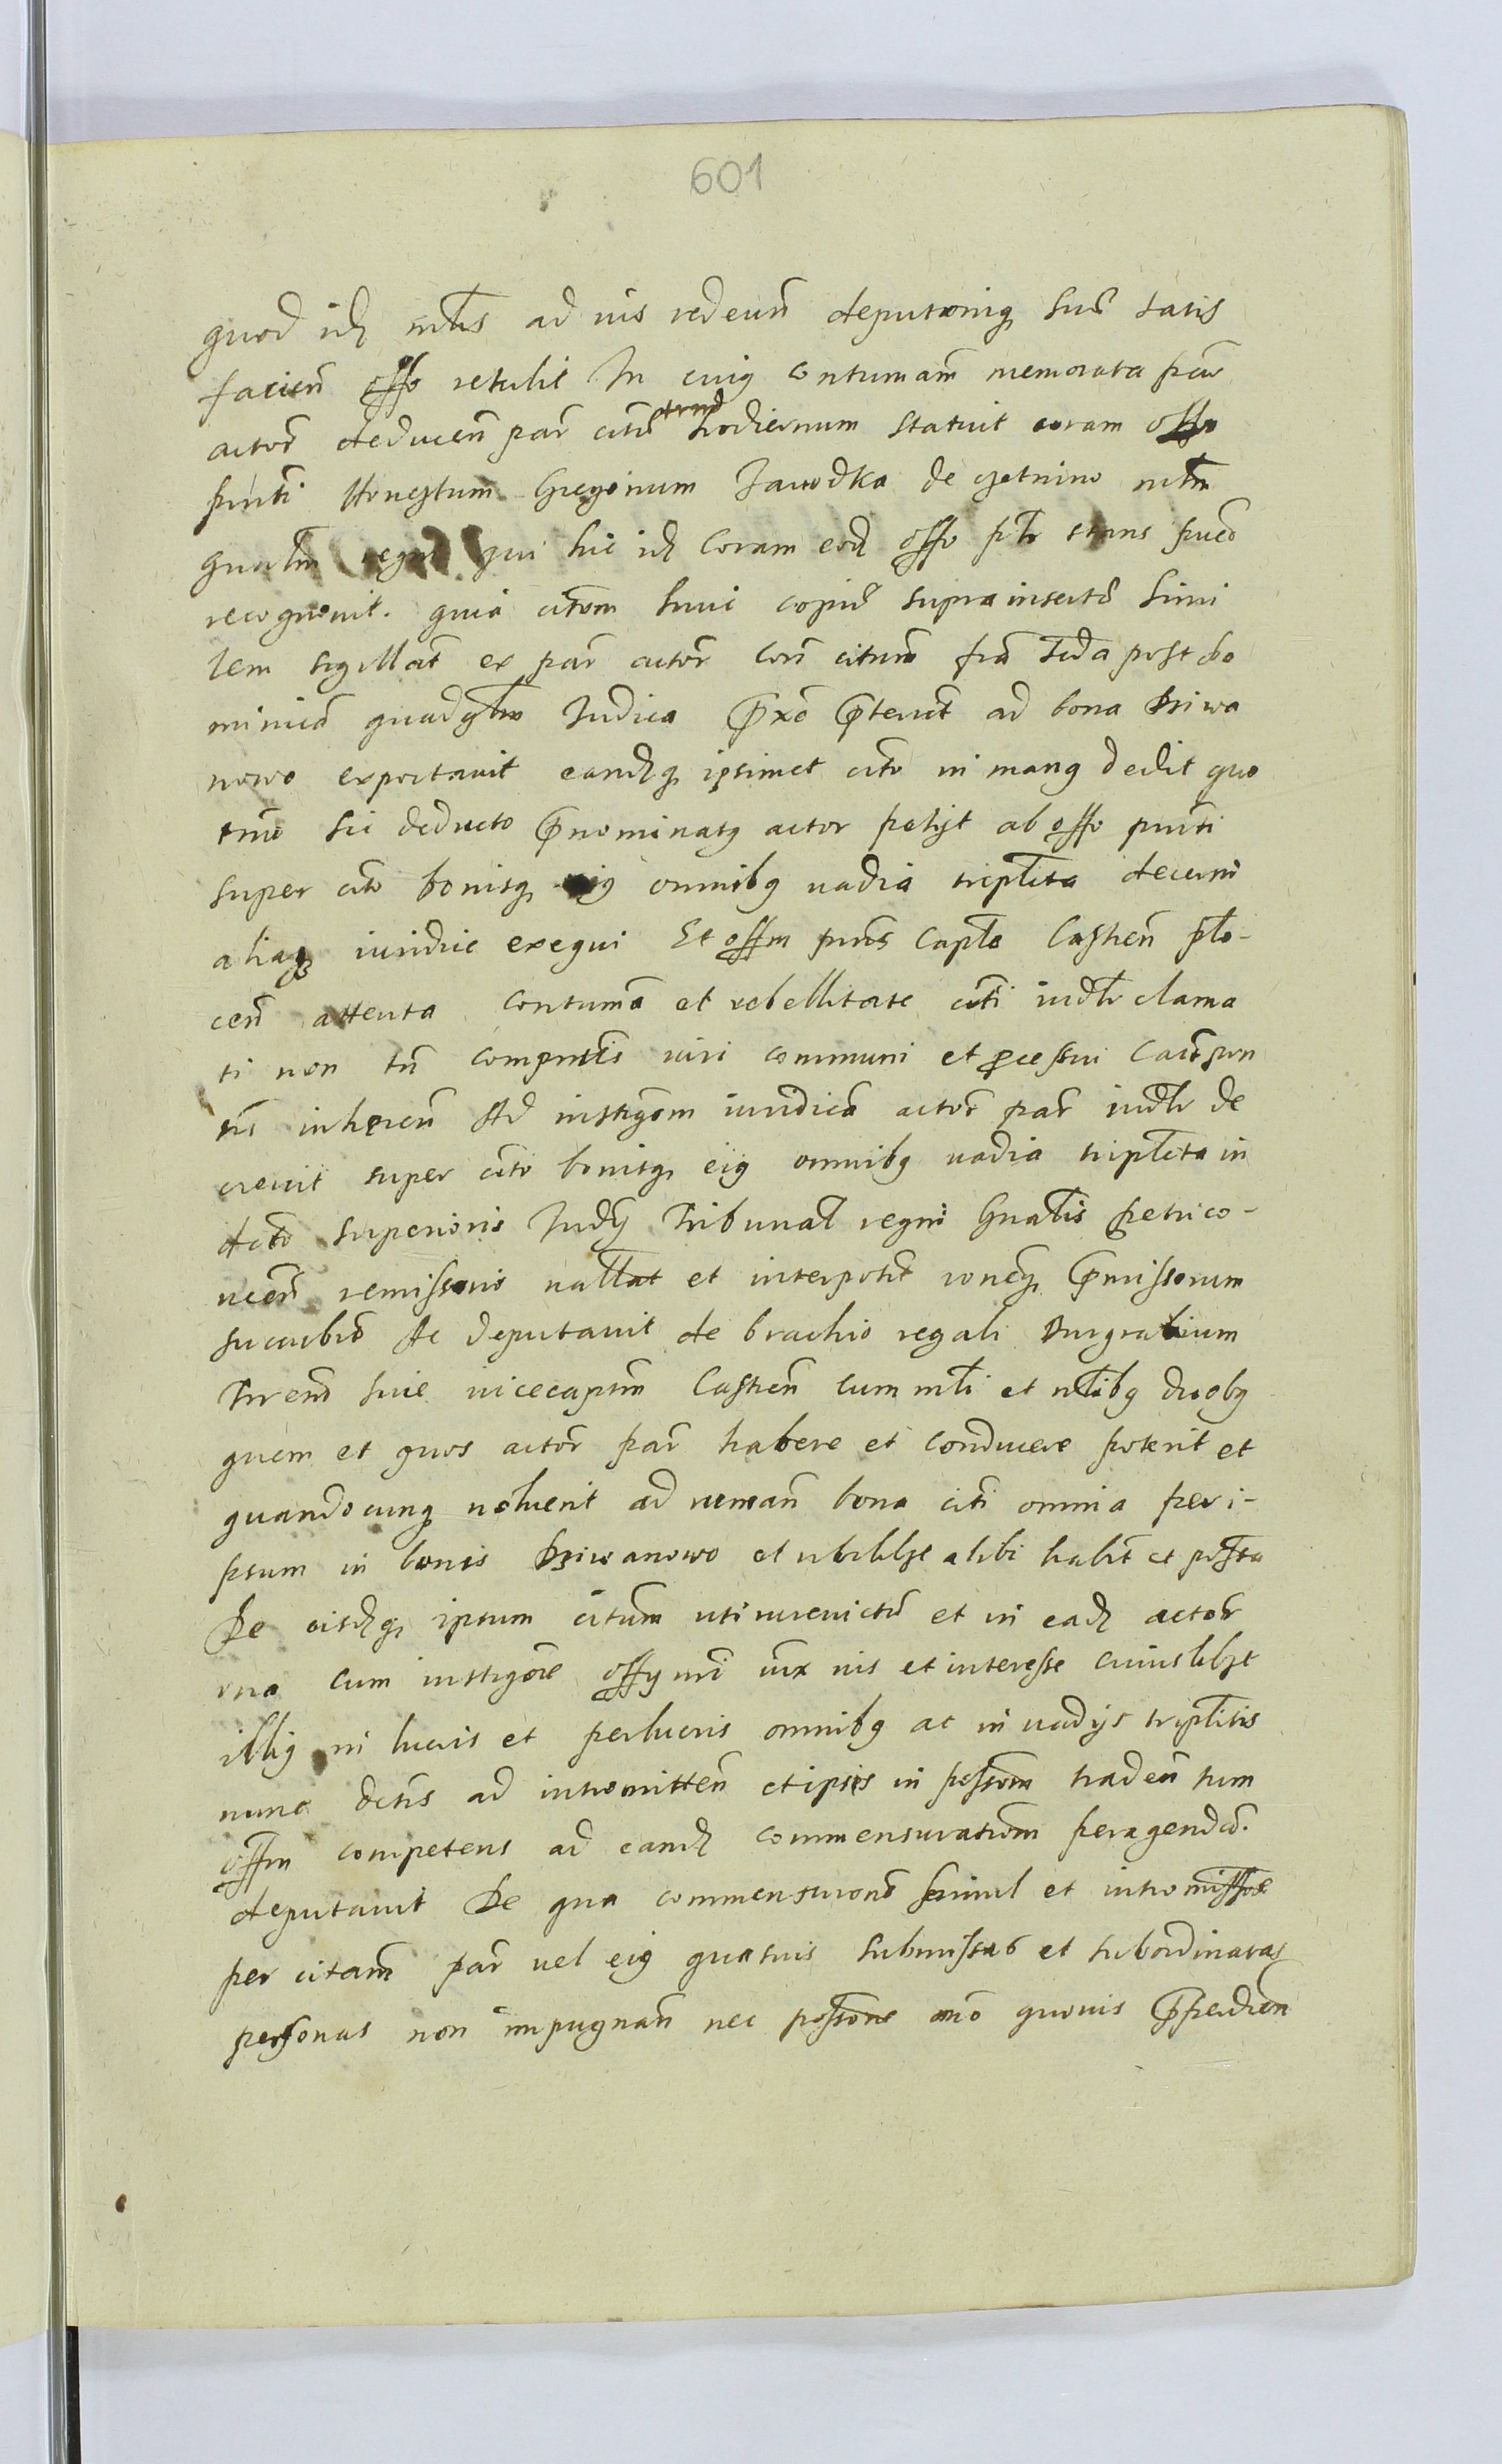 601
quod idē mtłs ad ius redeuñ deputōniq suæ satis
facieñ offo retulit In cuius contumām memorata pars
actor deduceñ par citū trnū hodiernum statuit coram offo
pnti Honestum Gregorium Jawodka de czetnino mtm
gnalm regni qui hic idē Coram eodē offo pr stans pub
recognovit. quia citōm huic copiæ suprainsertæ simi
lem sigillat ex par actor con citum fra 2da post do
minicā quadglm Judica pxe pterit ad bona Dziwa
nowo exportavit eandēq ipsimet cito in manus dedit quo
trno sic deducto pnominatus actor petyt ab offo pnti
super cito bonisq eius omnibus vadia triplita decerni
aliaq iuridice exequi Et offm pns Captle Castreñ plo-
ceñ attenta contumā et rebellitate citi iudtr clama
ti non tñ comprntis iuri communi et processui
inhereñ Ad instigōm iuridicā actor par iudtr de
crevit super cito bonisq eius omnibus vadia triplita in
Acto superioris Judy Tribunal regni Gnalis petrico-
vieñ remissorio vallat et interposit roneq pmissorum
succubuō Ac deputavit de brachio regali Burgrabium
Surrem sive vicecaptm Castreñ cum mtli et nlibus duobus
quem et quos actor par habere et conducere poterit et
quandocunq voluerit ad bona citi omnia per i-
psum in bonis Dziwanowo et ubilibet alibi habit et possa
De eisdēq ipsum citum uti iurevictū et in eadē actor
una cum instigōre offy nri iux vis et interesse cuiuslibet
illius in lucris et perlucris omnibus ac in vadys triplitis
nunc dctis ad intromitteñ et ipsis in possōm tradeñ tum
offm competens ad eandē commensurationm peragendā.
deputavit De qua commensurōne simul et intromissōe
per citam par vel eius quasvis submissas et subordinatas
personas non impugnañ nec possōne mō quovis ppedieñ